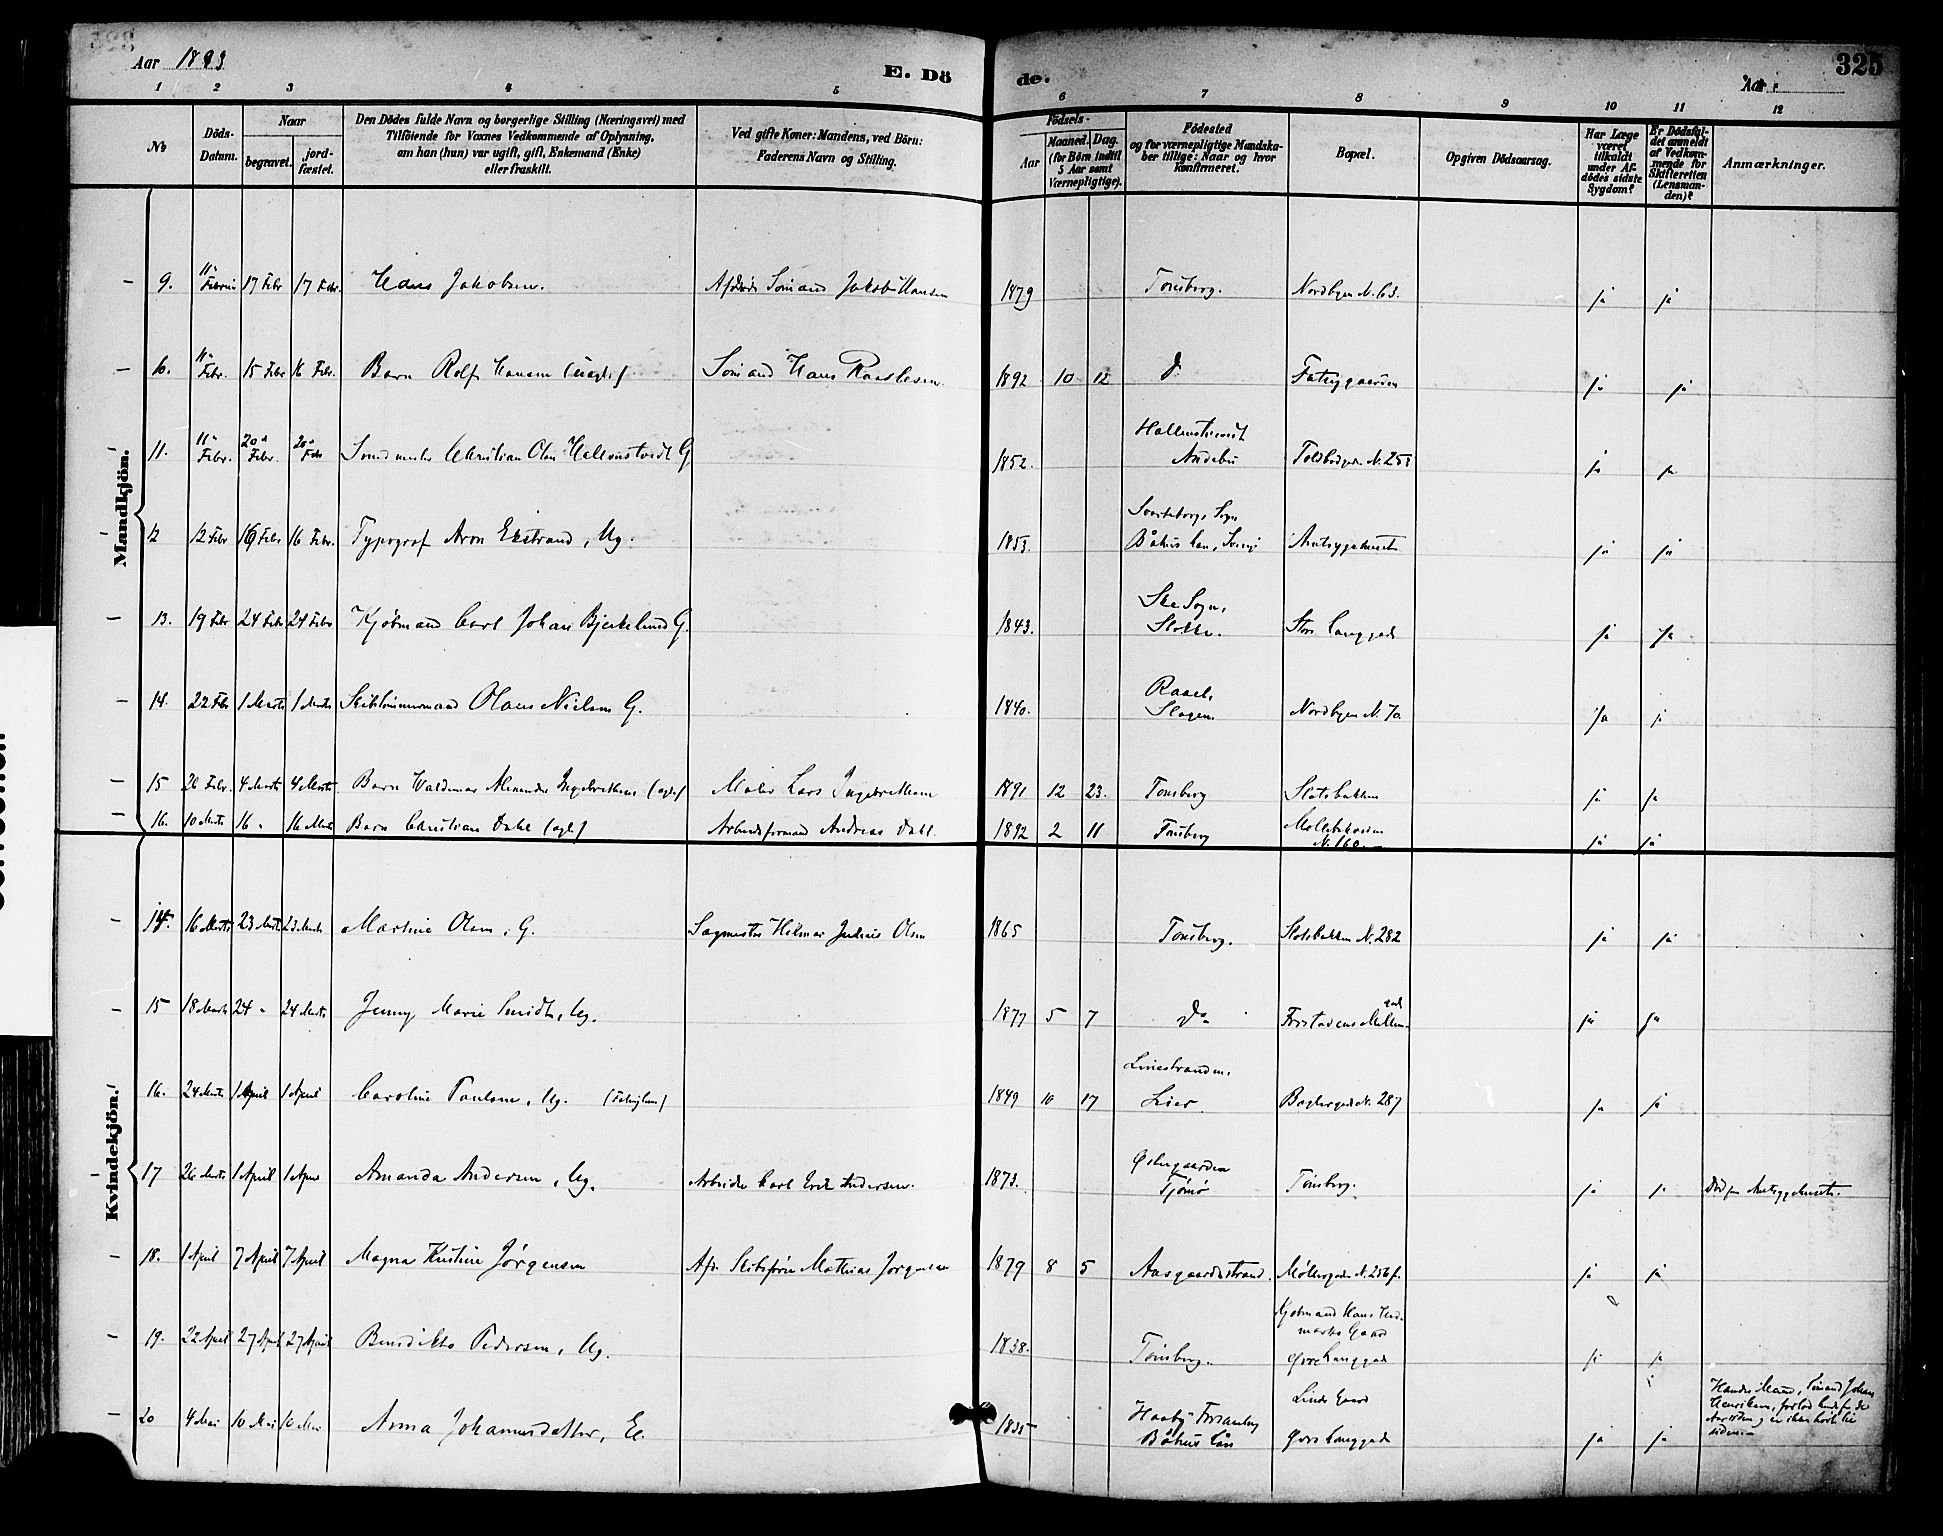 Aar 1893
E. Dö
de.
325
Aar
1 2 3 4 5 6 7 8 9 10 11 12
No
Döds-
Datum.
Naar
begravet.
jord-
fæstet.
Den Dödes fulde Navn og borgerlige Stilling (Næringsvei) med
Tilföiende for Voxnes Vedkommende af Oplysning,
om han (hun) var ugift, gift, Enkemand (Enke)
eller fraskilt.
Ved gifte Koner: Mandens, ved Börn:
Faderens Navn og Stilling.
Födsels-
Aar
Maaned. Dag.
(for Börn indtil
5 Aar samt
Værnepligtige).
Födested
og for værnepligtige Mandska-
ber tillige: Naar og hvor
konfirmeret.
Bopæl.
Opgiven Dödsaarsag.
Har Læge
været
tilkaldt
under Af-
dödes sidste
Sygdom?
Er Dödsfal-
det anmeldt
af Vedkom-
mende for
Skifteretten
(Lensman-
den)?
Anmærkninger.
Mandkjön.
9. 11 17 Febr 17 Febr. Hans Jakobsen. Sømand Jakob Hansen 1879 Tønsberg. Nordbyen N. 63. ja ja
10. 11 Febr. 15 Febr 16 Febr. Barn Rolf Hansen Sømand Hans 1892 10 12 ja ja
11. 11 Febr. 20 Febr. 20 Febr Christian Olsen G 1852. Andebu ja ja
12 12 Febr 16 Febr 16 Febr. Typograf Aron Ekstrand, Ug. 1853. Sogn Båhus Län, Amtsygehuset ja ja
13. 19 Febr 24 Febr 24 Febr Kjøbmand Carl Johan Bjerkelund G. 1843. Sogn, Stokke. Store Langgade ja ja
14. 22 Febr 1 Marts 1 Marts Skibstømmermand Olaus Nielsen G. 1840. Slagen Nordbyen N. 70 ja ja
15 26 Febr. 4 Marts 4 Marts Barn Valdemar Alexander Ingebretsen (ægte) Maler Lars Ingebretsen 1891 12 23. Tønsberg Slotsbakken ja ja
16. 10 Marts 16 " 16 Marts Barn Christian Dahl (ægte) Arbeidsformand Andreas Dahl. 1892 2 11 Tønsberg N. 160. ja ja
Kvindekjön.
14. 16 Marts 23 Marts 23 Marts Martine Olsen, G. Sagmester Hilmar Julius Olsen 1865 Tønsberg. Slotsbakken N. 282 ja ja
15 18 Marts 24 " 24 Marts Jenny Marie Smidt, Ug. 1877 5 7 Do ja ja
16. 24 Marts 1 April 1 April Caroline Paulsen, Ug. 1849 10 17 Liestranden, Lier. N. 287 ja ja
17 26 Marts 1 April 1 April Amanda Andersen, Ug. Arbeider Carl Andersen. 1873. Tjømø Tønsberg. ja ja Død paa Amtsygehuset.
18. 1 April 7 April 7 April Magna Kristine Jørgensen Afd. Skibsfører Mathias Jørgensen 1879 8 5 Aasgaardsstrand. Møllergaden N. 256 f. ja ja
19. 22 April 27 April 27 April Benedikte Pedersen, Ug. 1838. Tønsberg. Kjøbmand Hans Gaard Langgade ja ja
20 4 Mai 10 Mai 10 Mai Anna Johannesdatter, E. 1835 Båhus Län Gaard Langgade ja ja Hendes Mand, Sømand Johan Henriksen, siden.